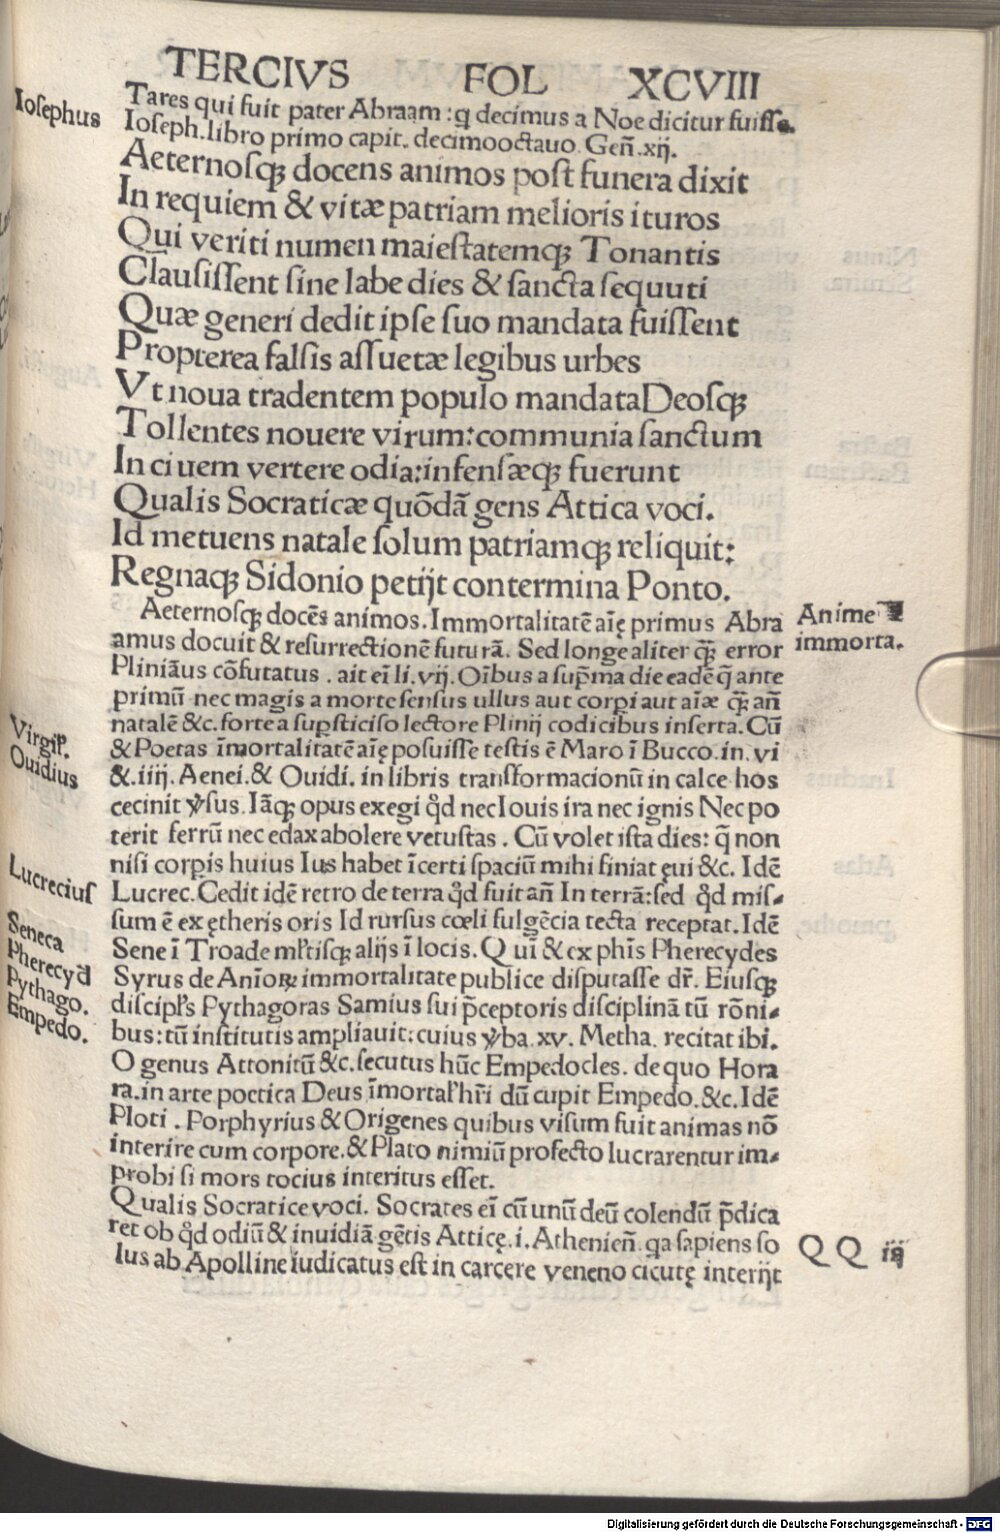 TERCIVS FOL XCVIII
Iosephus
Tares qui fuit pater Abraam : ꝙ decimus a Noe dicitur fuisse.
Ioseph. libro primo capit. decimooctauo. Geñ .xij.
Aeternosqꝫ docens animos post funera dixit
In requiem & vitæ patriam melioris ituros
Qui veriti numen maiestatemqꝫ Tonantis
Clausissent sine labe dies & sancta sequuti
Quæ generi dedit ipse suo mandata fuissent
Propterea falsis assuetæ legibus urbes
Vt noua tradentem populo mandataDeosqꝫ
Tollentes nouere virum: communia sanctum
In ciuem vertere odia: infensæqꝫ fuerunt
Qualis Socraticæ quōdã gens Attica voci.
Id metuens natale solum patriamqꝫ reliquit:
Regnaqꝫ Sidonio petijt contermina Ponto.
Aeternosqꝫ docẽs animos. Immortalitatẽ aĩę primus Abra
amus docuit & resurrectionẽ futurã. Sed longe aliter qꝫ̃ error
Pliniãus cõfutatus . ait eĩ li. vij. Oĩbus a sup̃ma die eadẽ q̃ ante
primũ nec magis a morte sensus ullus aut corpi aut aĩæ qꝫ̃ añ
natalẽ &c. forte a suꝑsticiso lectore Plinij codicibus inserta. Cũ
& Poetas ĩmortalitatẽ aĩę posuisse testis ẽ Maro ĩ Bucco. in. vi
&. iiij. Aenei. & Ouidi. in libris transformacionũ in calce hos
cecinit v̕sus. Iãqꝫ opus exegi qd̕ nec Iouis ira nec ignis Nec po
terit ferrũ nec edax abolere vetustas . Cũ volet ista dies: q̃ non
nisi corpis huius Ius habet ĩcerti spaciũ mihi finiat ęui &c. Idẽ
Lucrec. Cedit idẽ retro de terra qd̕ fuit añ In terrã: sed qd̕ mis-
sum ẽ ex ętheris oris Id rursus cœli fulgẽcia tecta receptat. Idẽ
Sene ĩ Troade ml̕tisqꝫ alijs ĩ locis. Q uĩ & ex phĩs Pherecydes
Syrus de Anĩoꝝ immortalitate publice disputasse dr̃. Eiusqꝫ
discipl̕s Pythagoras Samius sui p̃ceptoris disciplinã tũ rõni-
bus: tũ institutis ampliauit: cuius v̕ba. xv. Metha. recitat ibi.
O genus Attonitũ &c. secutus hũc Empedocles. de quo Hora
ra. in arte poetica Deus ĩmortal̕ hr̃i dũ cupit Empedo. &c. Idẽ
Ploti . Porphyrius & Origenes quibus visum fuit animas nõ
interire cum corpore. & Plato nimiũ profecto lucrarentur im-
probi si mors tocius interitus esset.
Qualis Socratice voci. Socrates eĩ cũ unũ deũ colendũ p̃dica
ret ob qd̕ odiũ & inuidiã gẽtis Atticę. i. Atheniẽn. qa sapiens so
lus ab Apolline iudicatus est in carcere veneno cicutę interijt
Anime
immorta.
Virgil̕.
Ouidius
Lucrecius
Seneca
Pherecyd
Pythago.
Empedo.
QQ iij
Digitalisierung gefördert durch die Deutsche Forschungsgemeinschaft - DFG